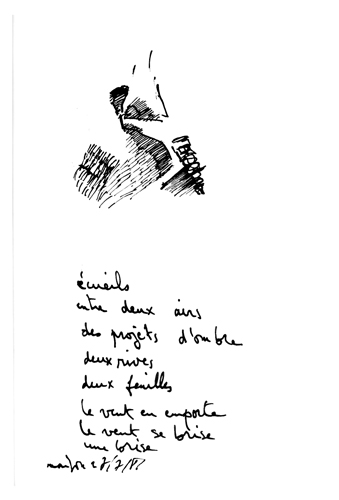 écueils
entre deux airs
des projets d'ombre
deux rives
deux feuilles
le vent en emporte
le vent se brise
une brise